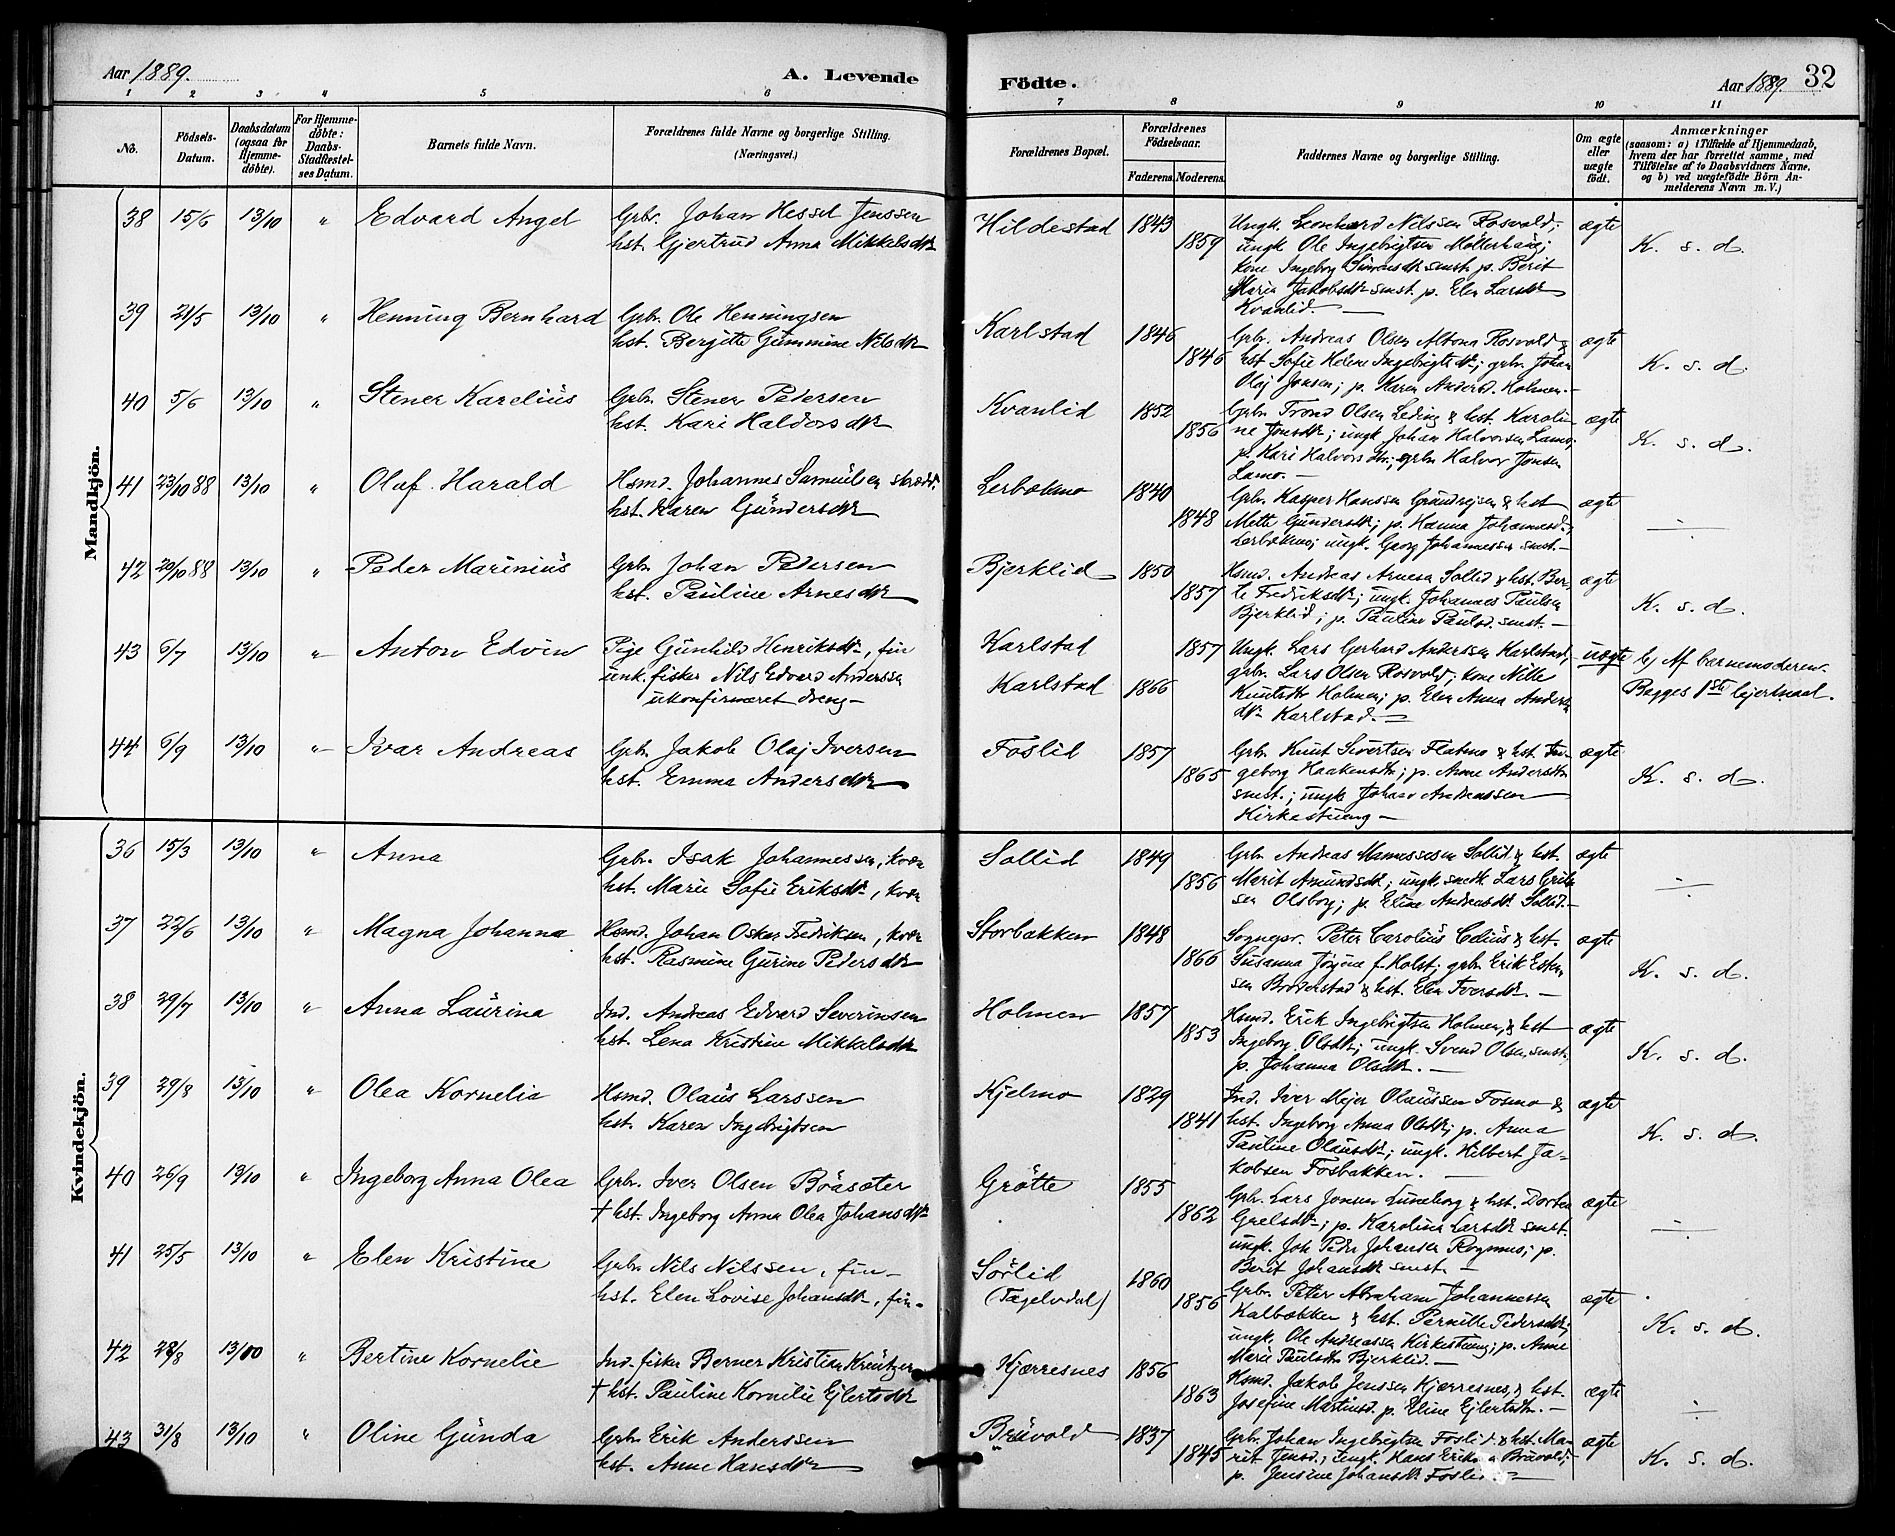 Aar 1889. A. Levende Födte. Aar 1889. 32
1 2 3 4 5 6 7 8 9 10 11
No. Födsels-Datum. Daabsdatum (ogsaa for Hjemme-döbte). For Hjemme-döbte: Daabs-Stadfæstel-ses Datum. Barnets fulde Navn. Forældrenes fulde Navne og borgerlige Stilling. (Næringsvei.) Forældrenes Bopæl. Forældrenes Födselsaar. Faderens. Moderens. Faddernes Navne og borgerlige Stilling. Om ægte eller uægte födt. Anmærkninger (saasom: a) i Tilfælde af Hjemmedaab, hvem der har forrettet samme, med Tilföielse af to Daabsvidners Navne, og b) ved uægtefödte Börn An-melderens Navn m. V.)
Mandkjön.
38 15/6 13/10 " Edvard Angel Grbr. Johan Hessel Jenssen Hildestad 1843 Ungk. Leonhard Nilssen Rosvold; ægte
hst. Gjertrud Anna Mikkelsdtr 1859 ungk Ole Ingebrigtsen Möllerhaug; K. s. d.
kone Ingeborg Simonsdtr smst. p. Berit
Maria Jakobsdtr smst. p. Elen Larsdtr
Kvanlid. —
39 21/5 13/10 " Henning Bernhard Grbr. Ole Henningsen Karlstad 1846 Grbr. Andreas Olsen Altona Rosvold & ægte
hst. Bergitte Gummine Nilsdtr 1846 hst Sofie Helene Ingebrigtsdtr; grbr. Johan K. s. d.
Olaj Jonsen; p. Karen Andersd. Holmen. —
40 5/6 13/10 " Stener Karelius Grbr. Stener Pedersen Kvanlid 1852 Grbr. Trond Olsen Leding & hst. Karoli- ægte
hst. Kari Haldorsdtr 1856 ne Jonsdtr; ungk Johan Halvorsen Lamo; K. s. d.
p. Kari Halvorsdtr; grbr Halvor Jonsen
Lamo. —
41 23/10 88 13/10 " Olaf Harald Hsmd. Johannes Samuelsen skrædr. Lerbækmo 1840 Grbr. Kasper Hanssen Grundrejsen & hst ægte
hst. Karen Gundersdtr 1848 Mette Gundersdtr; p. Hanna Johannesd.
Lerbækmo; ungk. Georg Johannessen smst. —
42 20/10 88 13/10 " Peder Marinius Grbr. Johan Pedersen Bjerklid 1850 Hsmd. Andreas Arnesen Sollid & hst. Ber- ægte
hst. Pauline Arnesdtr 1857 te Fredriksdtr; ungk. Johannes Paulsen K. s. d.
Bjerklid; p. Pauline Paulsd. smst. —
43 6/7 13/10 " Anton Edvin Pige Gunhild Henriksdtr, fin Karlstad 1857 Ungk. Lars Gerhard Anderssen Karlstad; uægte b) Af barnemoderen.
unk. fisker Nils Edvard Anderssen Karlstad 1866 grbr. Lars Olsen Rosvold; kone Nille Begges 1ste lejermaal.
ukonfirmeret dreng — Knutsdtr Holmen; p. Elen Anna Anders-
dtr Karlstad. —
44 6/9 13/10 " Ivar Andreas Grbr. Jakob Olaj Iversen Foslid 1857 Grbr. Knut Sivertsen Flatmo & hst. In- ægte
hst. Emma Andersdtr 1865 geborg Haakensdtr; p. Anne Andersdtr K. s. d.
smst.; ungk Johan Andreassen
Kirkestueng —
Kvindekjön.
36 15/3 13/10 " Anna Grbr. Isak Johannessen, kvæn Sollid 1849 Grbr. Andreas Mannessesen Sollid & hst. ægte
hst. Marie Sofie Eriksdtr, kvæn 1856 Marit Amundsdtr; ungk. smed Lars
sen Olsborg; p. Eline Andreasdtr Sollid. —
37 22/6 13/10 " Magna Johanna Hsmd. Johan Oskar Fredriksen, kvæn Storbakken 1848 Sognepr. Peter Carolius Celius & hst. ægte
hst. Rasmine Gurine Pedersdtr 1866 Susanna f. Holst; grbr. Erik Esten- K. s. d.
sen Broderstad & hst. Elen Iversdtr. —
38 29/7 13/10 " Anna Laurina Ind. Andreas Edvard Severinsen Holmen 1857 Hsmd. Erik Ingebrigtsen Holmen, & hst ægte
hst. Lena Kristine Mikkelsdtr 1853 Ingeborg Olsdtr; ungk. Svend Olsen smst. K. s. d.
p. Johanna Olsdtr. —
39 29/8 13/10 " Olea Kornelia Hsmd. Olaus Larssen Kjelmo 1829 Ind. Iver Mejer Olaussen Fosmo & ægte
hst. Karen Ingebrigtsen 1841 hst. Ingeborg Anna Olsdtr; p. Anna K. s. d.
Pauline Olausdtr; ungk. Hilbert Ja-
kobsen Fosbakken. —
40 26/9 13/10 " Ingeborg Anna Olea Grbr. Iver Olsen Böasæter Grötte 1855 Grbr. Lars Jonsen Luneborg & hst. Dortea ægte
† hst. Ingeborg Anna Olea Johansdtr 1862 Grelsdtr; p. Karoline Larsdtr smst.
ungk. Joh. Peder Johansen Rognmo; p.
Berit Johansdtr smst. —
41 25/5 13/10 " Elen Kristine Grbr. Nils Nilssen, fin — Sörlid 1860 Grbr. Peter Abraham Johannessen ægte
hst. Elen Lovise Johansdtr, fin — (Tagelvdal) 1856 Kalbækken & hst. Pernille Pedersdtr; K. s. d.
ungk. Ole Andreassen Kirkestueng; p. Anne
Marie Paulsdtr Bjerklid. —
42 28/8 13/10 " Bertine Kornelie Ind. fisker Berner Kristian Kreutzer Kjærresnes 1856 Hsmd. Jakob Jenssen Kjærresnes, & hst. ægte
† hst. Pauline Kornelie Ejlertsdtr 1863 Josefine Martinsd. p. Eline Ejlertsdtr. —
43 31/8 13/10 " Oline Gunda Grbr. Erik Anderssen Bruvold 1837 Grbr. Johan Ingebrigtsen Foslid & hst. Ma- ægte
hst. Anne Hansdtr 1845 rit Jensd.; ungk. Hans Eriksen Bruvold; K. s. d.
p. Jensine Johansdtr Foslid —